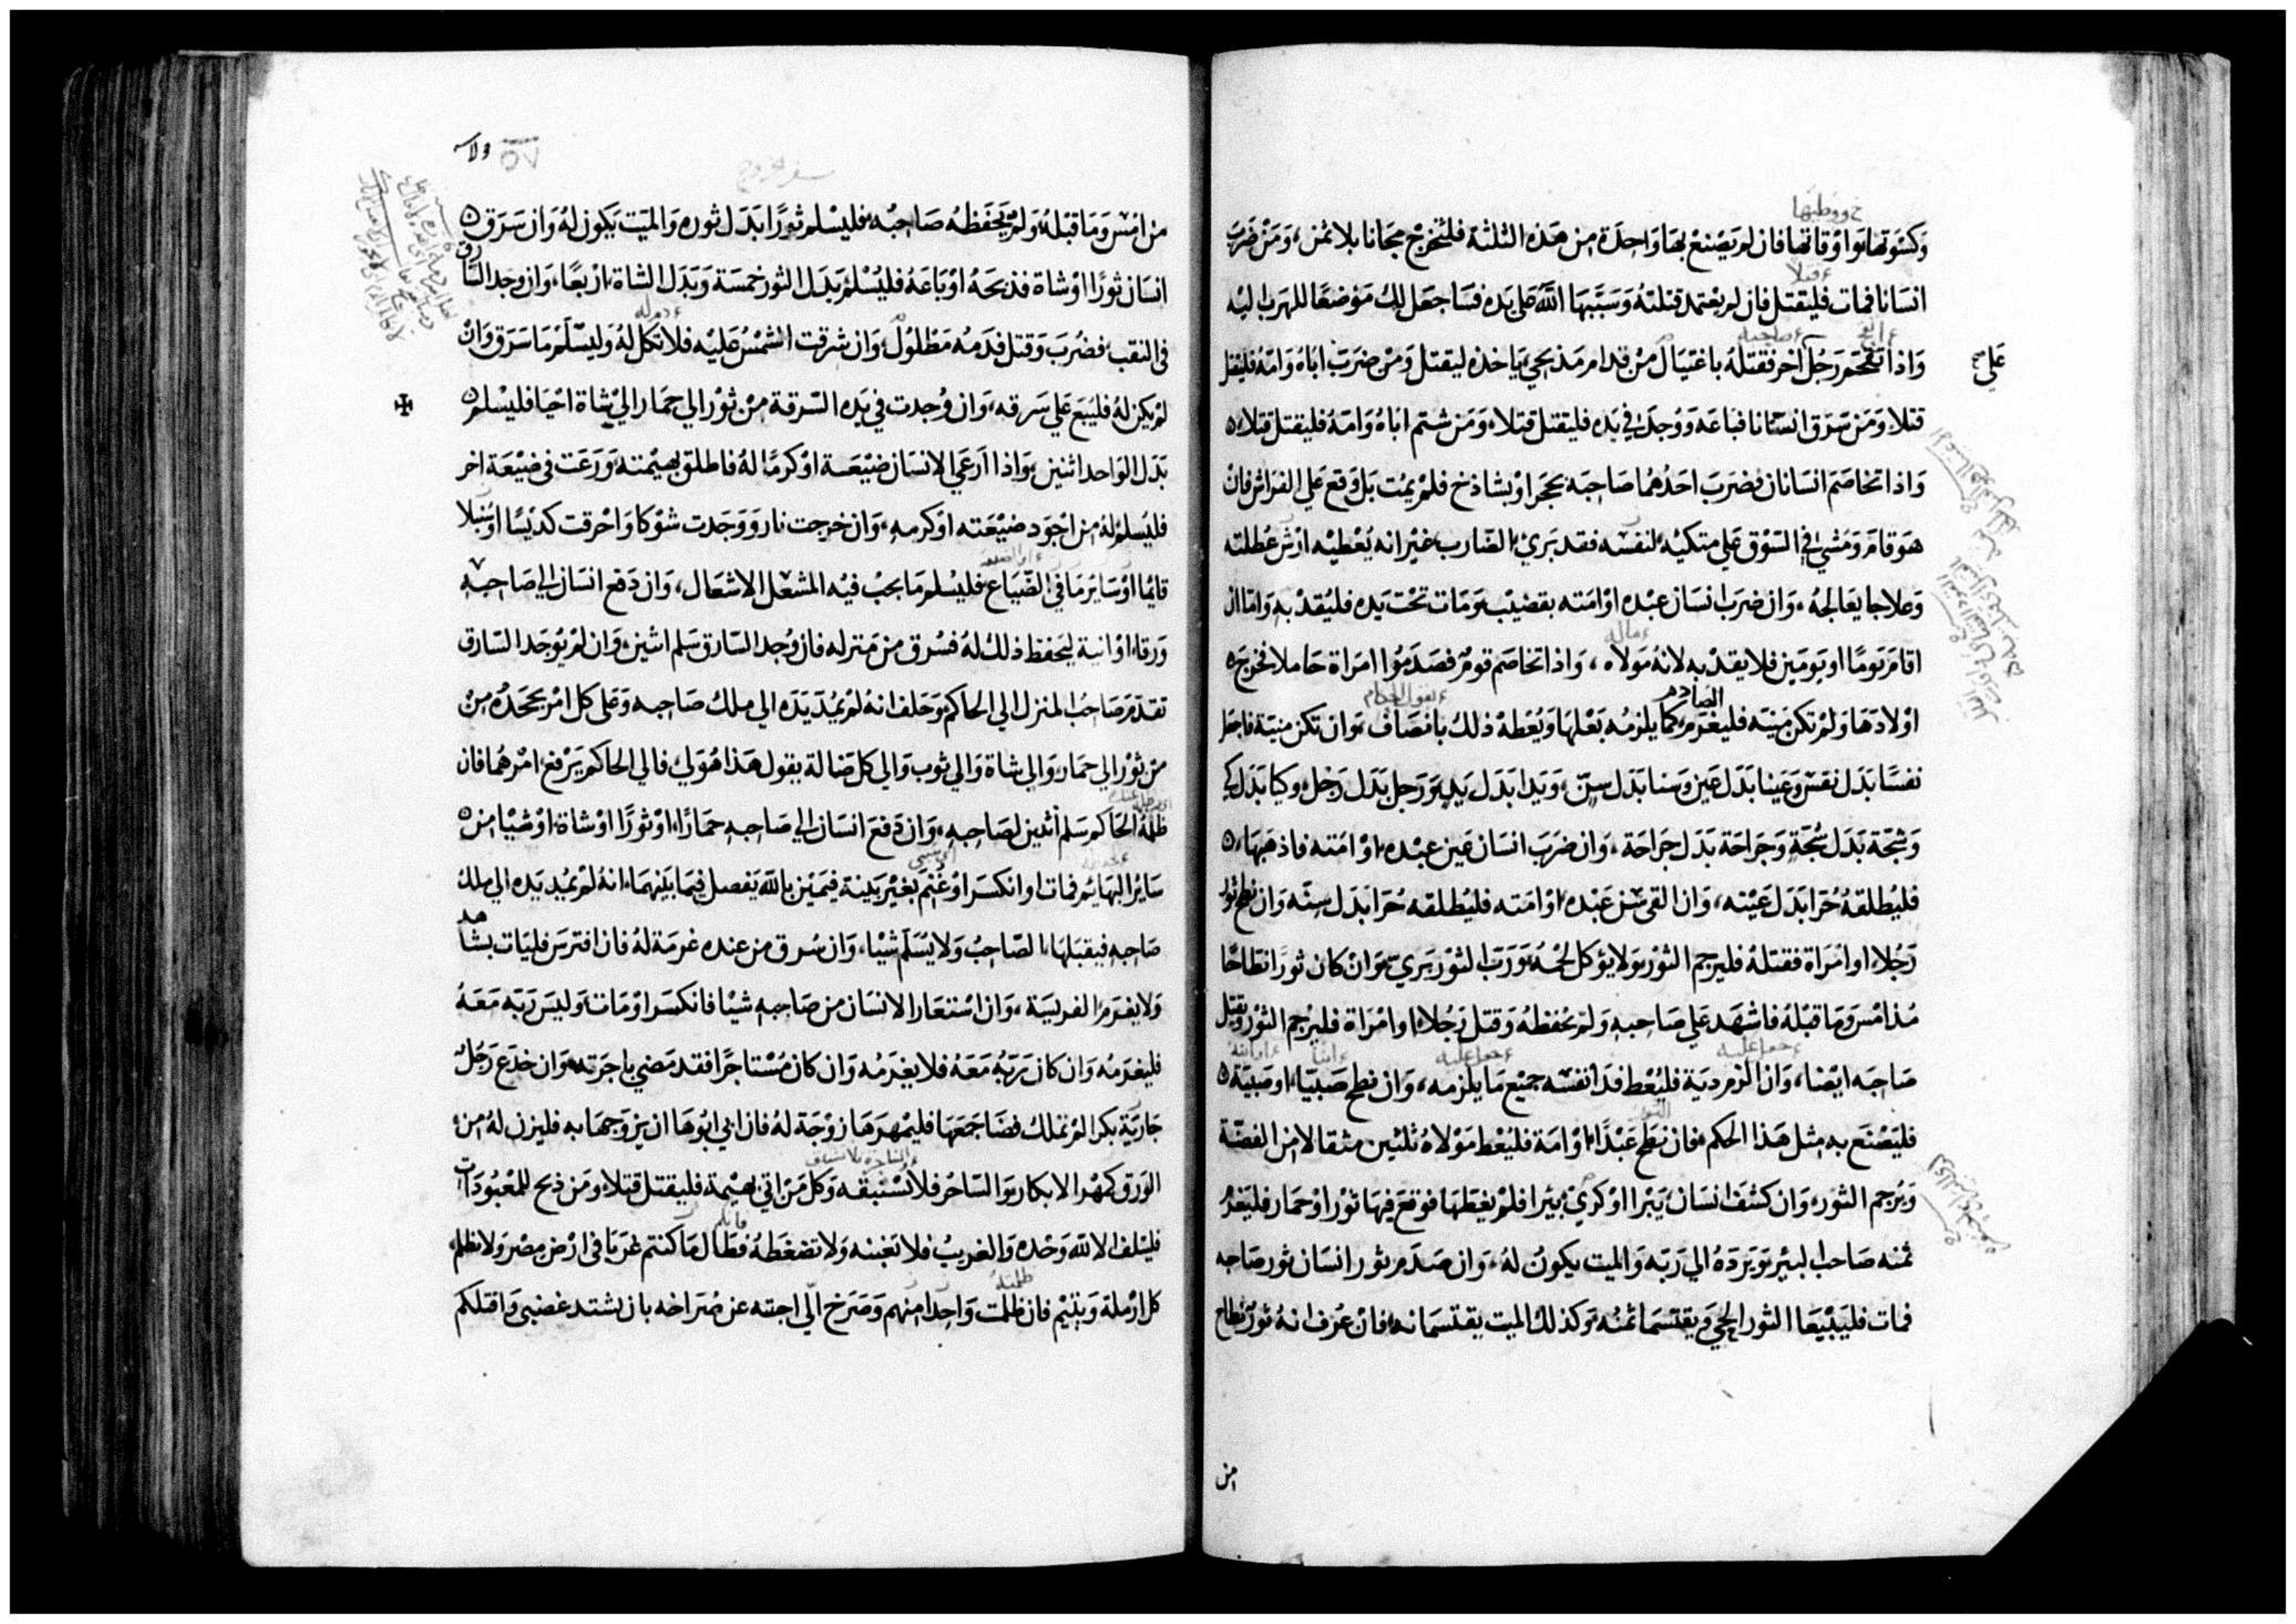 وكسوتها واوقاتها فان لم يصنع بها واحدة من هذه الثلثة فلتخرج مجانا بلا ثمن، ومن ضرب
انسانا فمات فليقتل فان لم يعتمد قتلته وسببها الله على يده فساجعل لك موضعا للهرب اليه
واذا تقحم رجل آخر فقتله باغتيال من قدام مذبحي ياخذه ليقتل ومن ضرب اباه وامه فليقتل
قتلا، ومن سرق انسانا فباعه ووجد في يده فليقتل قتلا، ومن شتم اباه وامه فليقتل قتلا
واذا تخاصم انسانان فضرب احدهما صاحبه بحجر او بشاذخ فلم يمت بل وقع على الفراش فان
هو قام ومشى في السوق على متكيه لنفسه فقد بري الضارب غير انه يعطيه ارش عطلته
وعلاجا يعالجه، وان ضرب انسان عبده او امته بقضيب ومات تحت يده فليقد به واما ان
اقام يوما او يومين فلا يقد به لانه مولاه، واذا تخاصم قوم فصدموا امراة حاملا فخرج
اولادها ولم تكن منية فليغرم كما يلزمه بعلها ويعطه ذلك بانصاف، وان تكن منية فاجعل
نفسا بدل نفس وعينا بدل عين وسنا بدل سن، ويدا بدل يد، ورجل بدل رجل، وكيا بدل كي
وشجة بدل شجة وجراحة بدل جراحة، وان ضرب انسان عين عبده او امته فاذهبها،
فليطلقه حرا بدل عينه، وان القى سن عبده او امته فليطلقه حرا بدل سنه وان نطح ثور
رجلا او امراة فقتله فليرجم الثور ولا يؤكل لحمه ورب الثور بري، وان كان ثورا نطاحا
مذ امس وما قبله فاشهد على صاحبه ولم يحفظه وقتل رجلا او امراة فليرجم الثور ويقتل
صاحبه ايضا، وان الزم دية فليعط فدا نفسه جميع ما يلزمه، وان نطح صبيا او صبية
فليصنع به مثل هذا الحكم، فان نطح عبدا او امة فليعط مولاه ثلثين مثقالا من الفضة
ويرجم الثور، وان كشف انسان بيرا او كري بيرا فلم يغطها فوقع فيها ثور او حمار فليغرم
ثمنه صاحب البير ويرده الى ربه والميت يكون له، وان صدم ثور انسان ثور صاحبه
فمات فليبيعا الثور الحي ويقتسما ثمنه وكذلك الميت يقتسمانه، فان عرف انه ثور نطاح
من
٥٧
سفر الخروج
من امس وما قبله ولم يحفظه صاحبه فليسلم ثورا بدل ثوره والميت يكون له وان سرق
انسان ثورا او شاة فذبحه او باعه فليسلم بدل الثور خمسة وبدل الشاة اربعا، وان وجد السارق
في النقب فضرب وقتل فدمه مطلول، وان شرقت الشمس عليه فلا تكل له وليسلم ما سرق وان
لم يكن له فليبع على سرقه، وان وجدت في يده السرقة من ثور الى حمار الى شاة احيا فليسلم
بدل الواحد اثنين، واذا ارعى الانسان ضيعة او كرما له فاطلق بهيمته ورعت في ضيعة اخر
فليسلم له من اجود ضيعته او كرمه، وان خرجت نار ووجدت شوكا واحرقت كديسا او سنبلا
قايما او ساير ما في الضياع فليسلم ما يجب فيه المشعل الاشعال، وان دفع انسان الى صاحبه
ورقا او انية ليحفظ ذلك له فسرق من منزله فان وجد السارق سلم اثنين، وان لم يوجد السارق
تقدم صاحب المنزل الى الحاكم وحلف انه لم يمد يده الى ملك صاحبه وعلى كل امر يجحده من
من ثور الى حمار والى شاة والى ثوب والى كل ضالة يقول هذا هو لي فالى الحاكم يرفع امرهما فان
ظلمه الحاكم سلم اثنين لصاحبه، وان دفع انسان الى صاحبه حمارا او ثورا او شاة او شيا من
ساير البهائم فمات او انكسر او غنم بغير بينة فيمين بالله يفصل فيما بينهما، انه لم يمد يده الى ملك
صاحبه فيقبلها الصاحب ولا يسلم شيا، وان سرق من عنده غرمه له فان افترس فليات بشاهد
ولا يغرم الفريسة، وان استعار الانسان من صاحبه شيا فانكسر او مات وليس ربه معه
فليغرمه وان كان ربه معه فلا يغرمه وان كان مستاجرا فقد مضى باجرته، وان خدع رجل
جارية بكرا لم تملك فضاجعها فليمهرها زوجة له فان ابى ابوها ان يزوجها به فليزن له من
الورق كمهر الابكار، والساحر فلا تستبقه وكل من اتى بهيمة فليقتل قتلا ومن ذبح للمعبودات
فليتلف الا لله وحده والغريب فلا تغبنه ولا تضغطه فطال ما كنتم غربا في ارض مصر ولا تظلم
كل ارملة ويتيم فان ظلمت واحدا منهم وصرخ الي اجبته عن صراخه بان يشتد غضبي واقتلكم